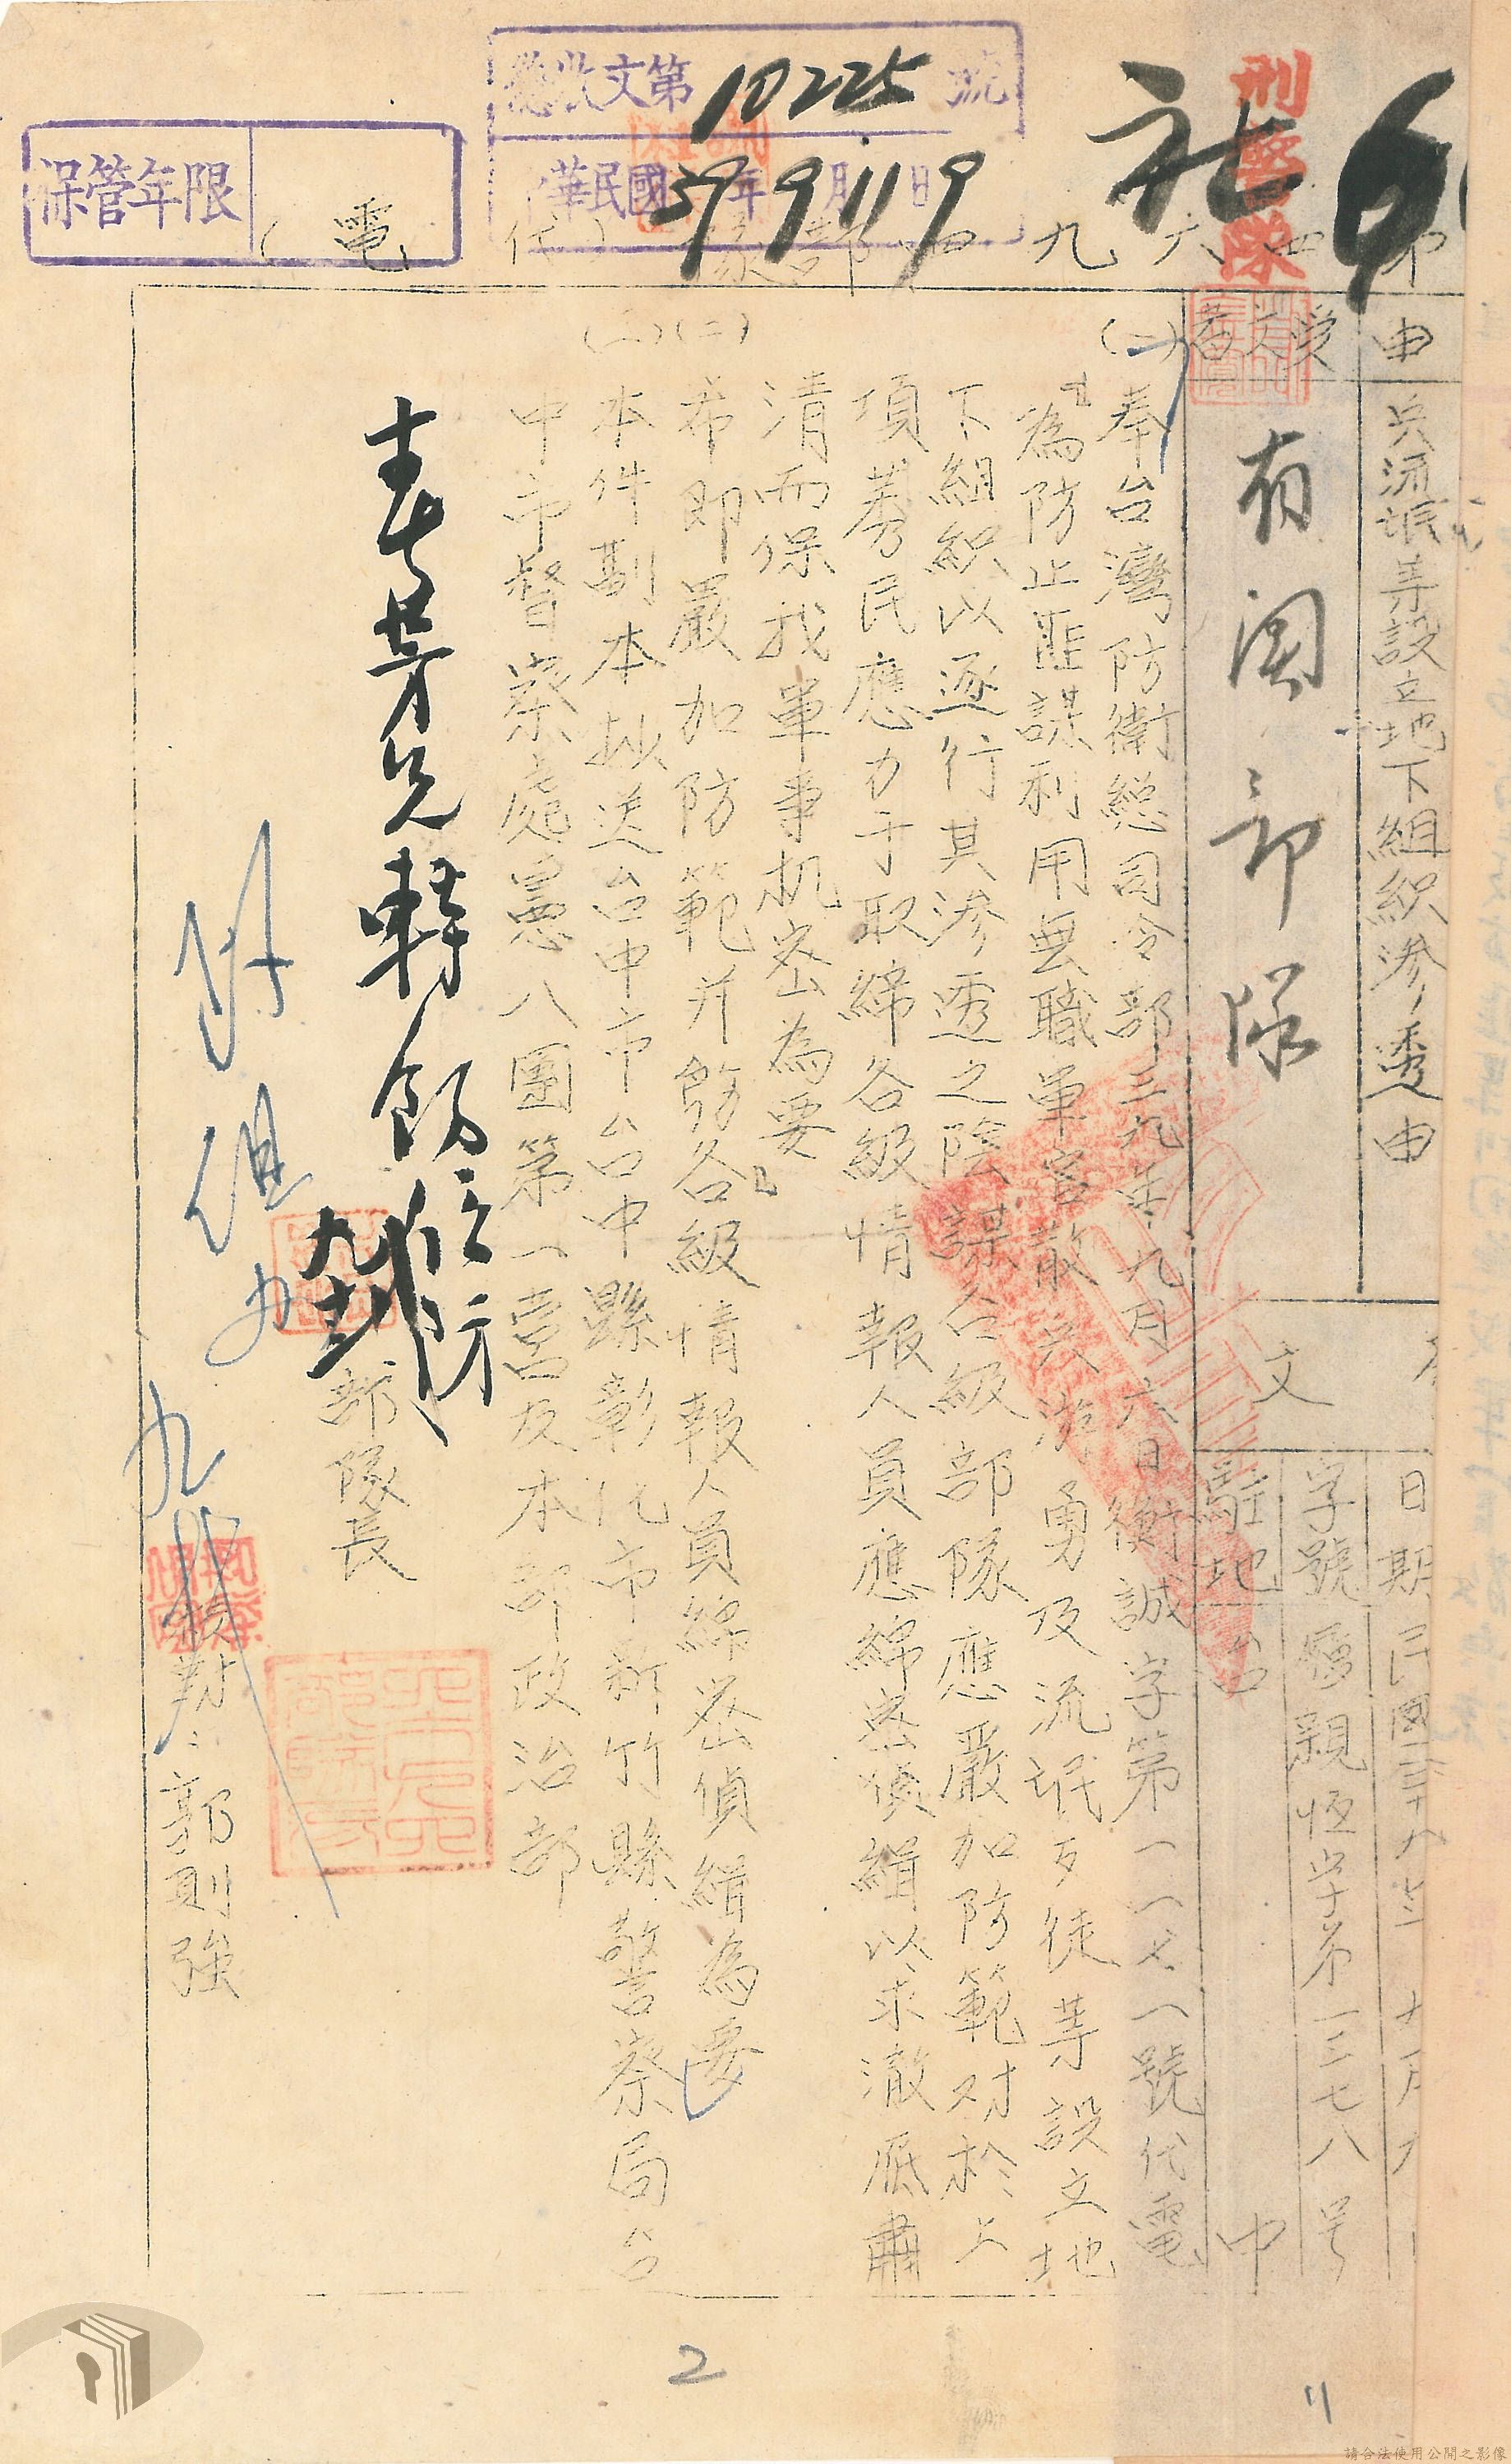 總收文第10225號
華民國39年9月11日9
保管年限
刑警隊
社
四六九四部隊(代電)
由
兵流氓等設立地下組織滲透由
受文者
有関部隊
文
日期
民國三十九年
字號
親恆字第一三七八号
駐地
台中
(一)奉台灣防衛總司令部三九年九月六日衡誠字第一一七一號代電
「為防止匪諜利用無職軍官散兵游勇及流氓歹徒等設立地
下組織以逐行其滲透之陰謀各級部隊應嚴加防範对於上
項莠民應力于取締各級情報人員應綿密偵緝以求澈底肅
清而保我軍事机密為要」
(二)希即嚴加防範并飭各級情報人員綿密偵緝為要
(三)本件副本抄送台中市台中縣彰化市新竹縣警察局台
中市督察處憲八團第一營及本部政治部
部隊長
春芳兄轉飭注防
校對：郭則強
2
11
請合法使用公開之影像